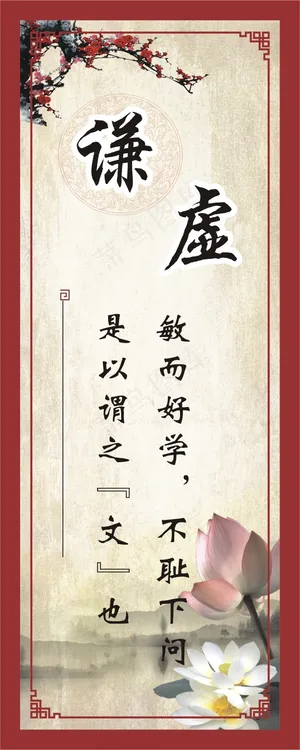 谦虚
敏而好学，不耻下问
是以谓之『文』也